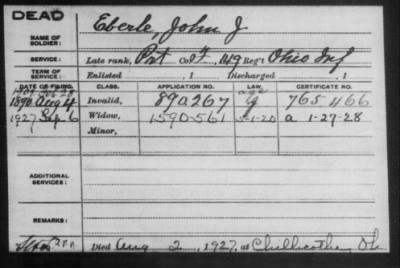 DEAD
Eberle, John J
NAME OF SOLDIER:
SERVICE: Late rank, Pvt Co. F, 149 Reg't Ohio Inf
TERM OF SERVICE: Enlisted , 1 Discharged , 1
DATE OF FILING. CLASS. APPLICATION NO. LAW. CERTIFICATE NO.
1890 Aug 4 Invalid, 890267 765466
1927 Sep 6 Widow, 1590561 5-1-20 a 1-27-28
Minor,
ADDITIONAL SERVICES:
REMARKS:
Died Aug 2, 1927, at Chillicothe, Oh